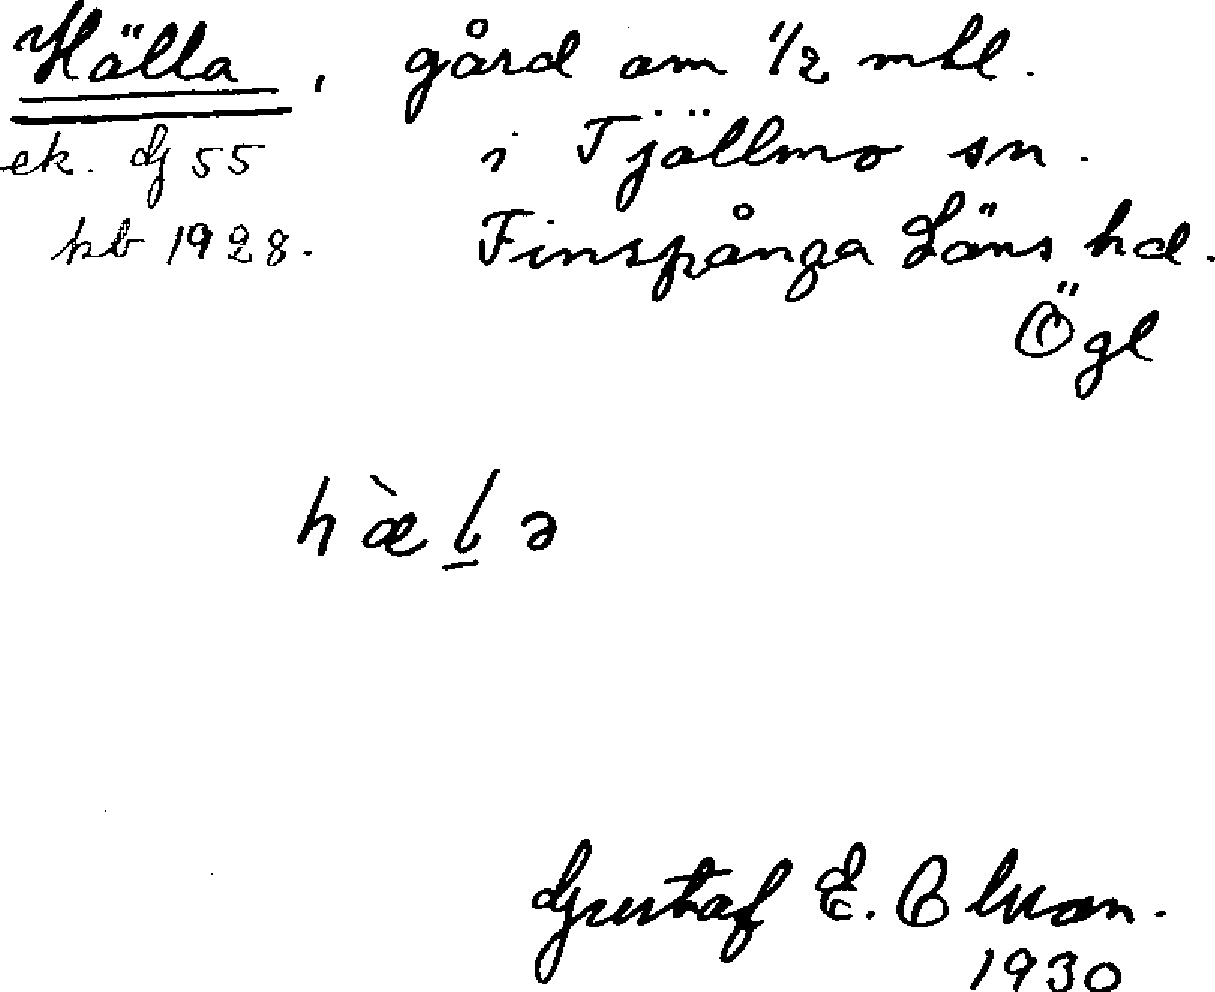 Hälla, gård om 1/2 mtl.
ek. dj 55 i Tjällmo sn.
kb 1928. Finspånga Läns hd.
Ögl
hæ̀l̠ə
Gustaf E. Olsson.
1930